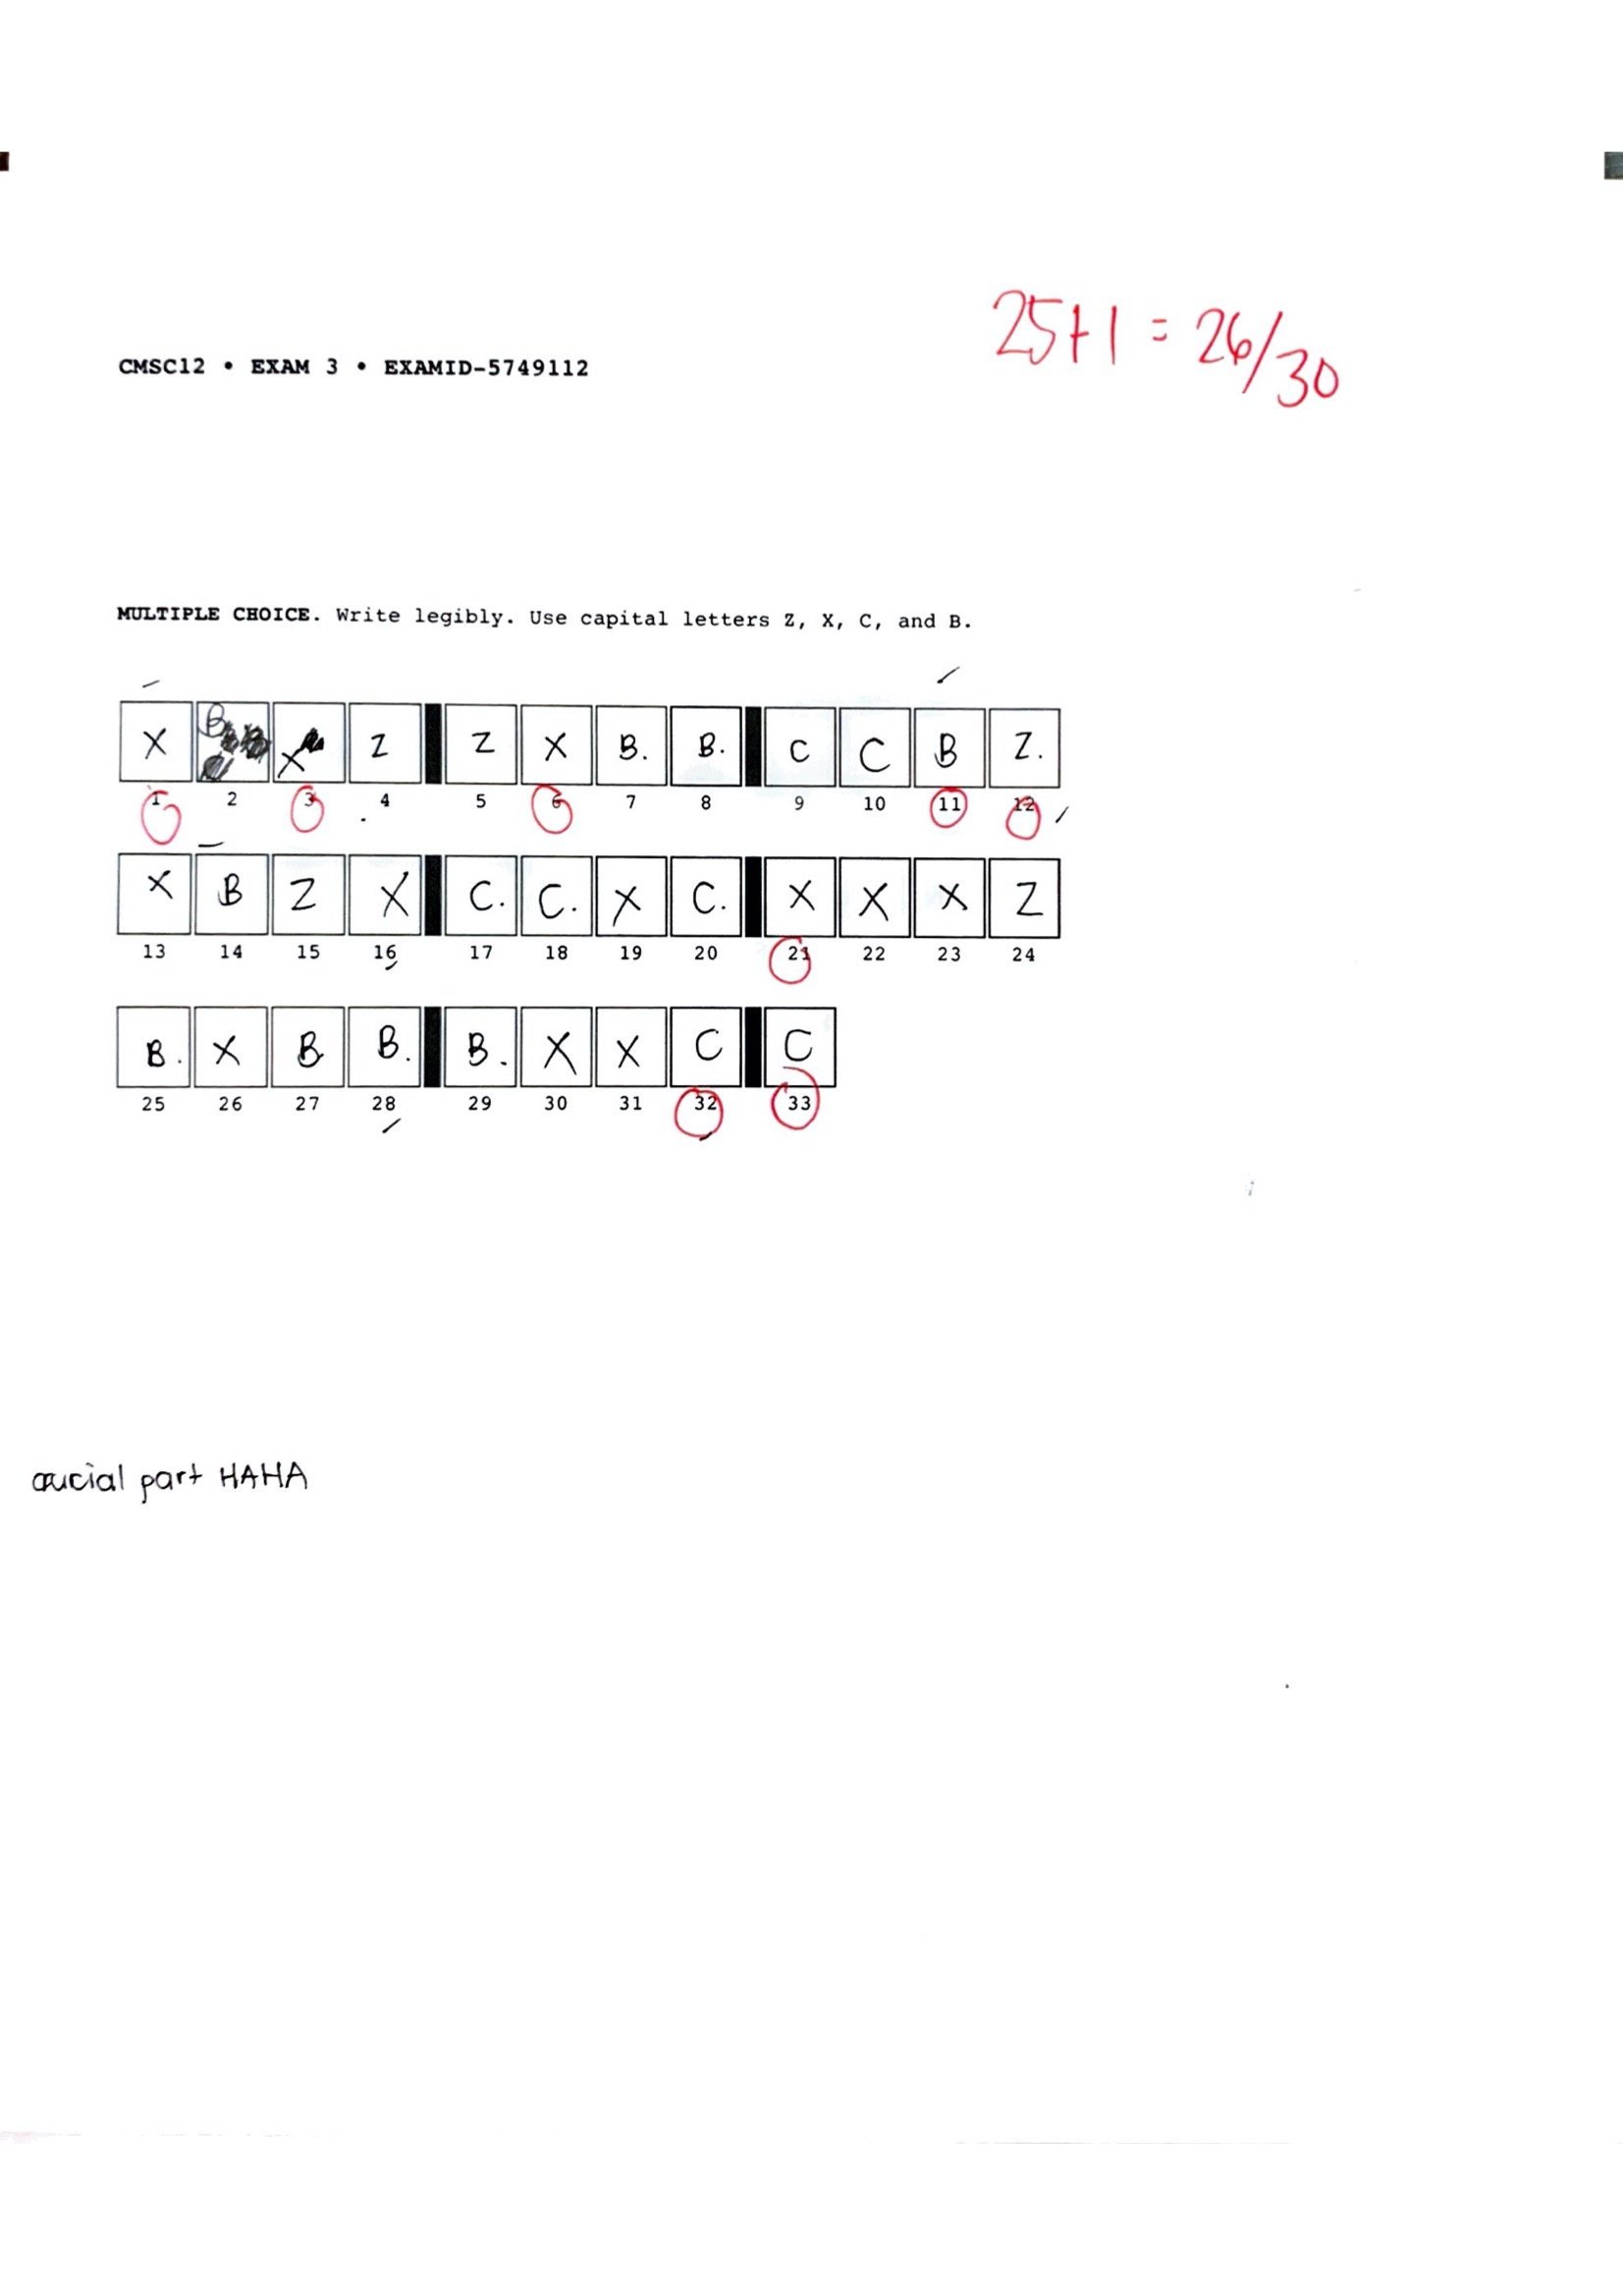 25+1 = 26/30
CMSC12 • EXAM 3 • EXAMID-5749112
MULTIPLE CHOICE. Write legibly. Use capital letters Z, X, C, and B.
X B X Z Z X B. B. C C B Z.
1 2 3 4 5 6 7 8 9 10 11 12
X B Z X C. C. X C. X X X Z
13 14 15 16 17 18 19 20 21 22 23 24
B. X B B. B. X X C C
25 26 27 28 29 30 31 32 33
crucial part HAHA